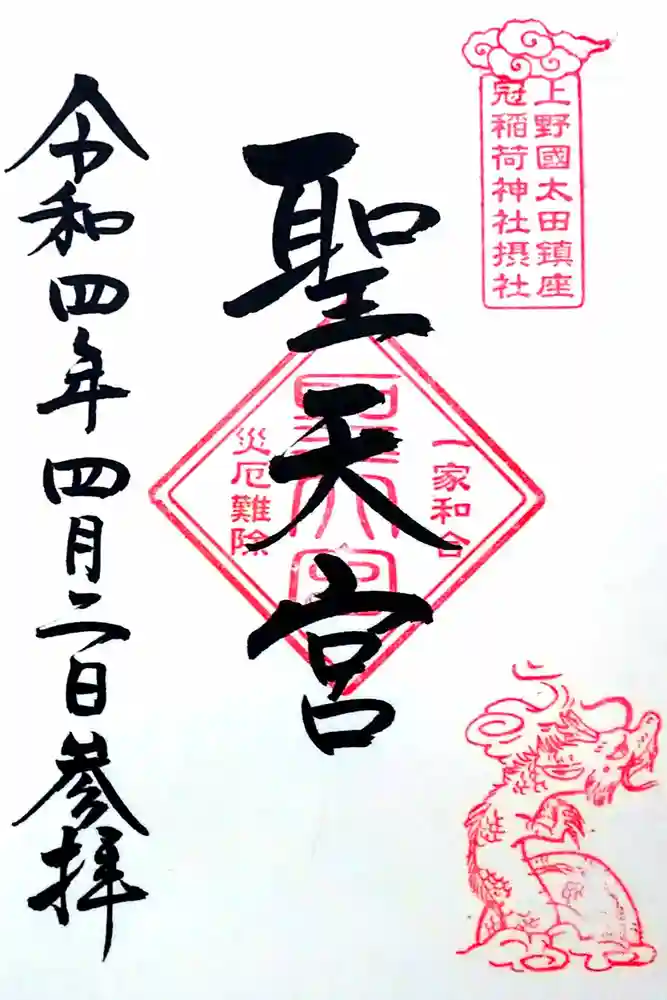 上野國太田鎮座
冠稲荷神社摂社
聖天宮
一家和合
聖天宮
災厄難除
令和四年四月二日参拝